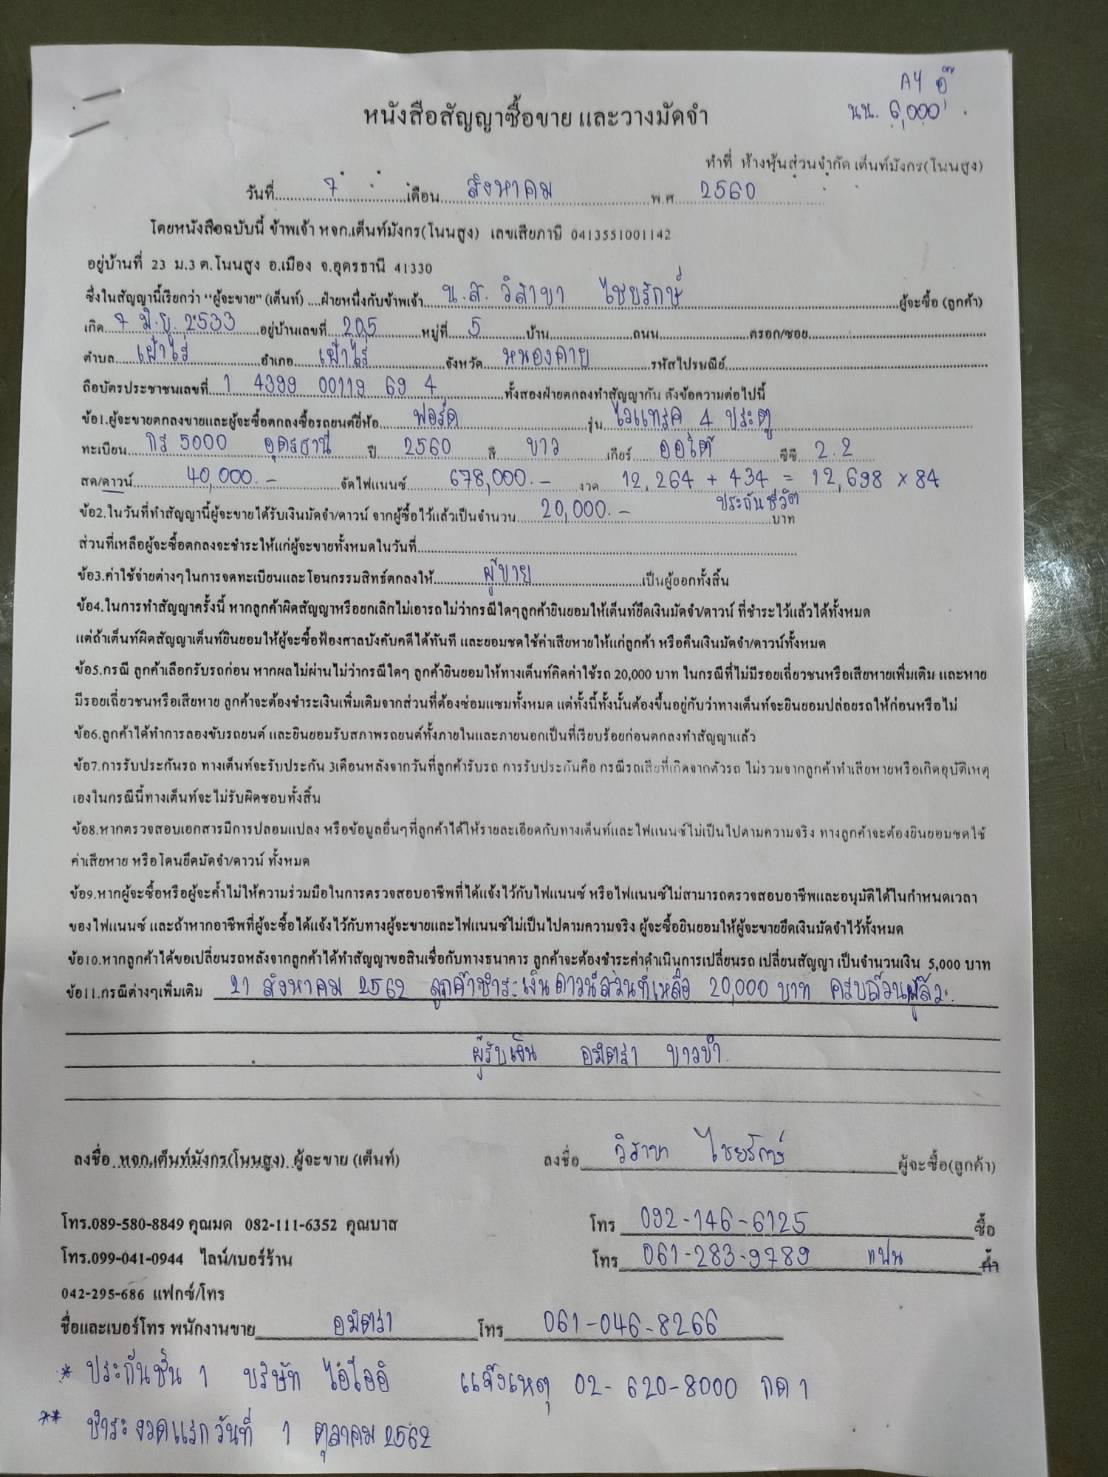 A4 อู๊
นน. 6,000
หนังสือสัญญาซื้อขาย และวางมัดจำ
ทำที่ ห้างหุ้นส่วนจำกัด เต็นท์มังกร(โนนสูง)
วันที่ 7 เดือน สิงหาคม พ.ศ 2560
โดยหนังสือฉบับนี้ ข้าพเจ้า หจก.เต็นท์มังกร(โนนสูง) เลขเสียภาษี 0413551001142
อยู่บ้านที่ 23 ม.3 ต.โนนสูง อ.เมือง จ.อุดรธานี 41330
ซึ่งในสัญญานี้เรียกว่า "ผู้จะขาย" (เต็นท์) ....ฝ่ายหนึ่งกับข้าพเจ้า น.ส. วิสาขา ไชยรักษ์ ผู้จะซื้อ (ลูกค้า)
เกิด 7 มิ.ย. 2533 อยู่บ้านเลขที่ 205 หมู่ที่ 5 บ้าน ถนน ตรอก/ซอย
ตำบล เฝ้าไร่ อำเภอ เฝ้าไร่ จังหวัด หนองคาย รหัสไปรษณีย์
ถือบัตรประชาชนเลขที่ 1 4399 00119 69 4 ทั้งสองฝ่ายตกลงทำสัญญากัน ดังข้อความต่อไปนี้
ข้อ1.ผู้จะขายตกลงขายและผู้จะซื้อตกลงซื้อรถยนต์ยี่ห้อ ฟอร์ด รุ่น ไวแทรค 4 ประตู
ทะเบียน กร 5000 อุดรธานี ปี 2560 สี ขาว เกียร์ ออโต้ ซีซี 2.2
สด/ดาวน์ 40,000.- จัดไฟแนนซ์ 678,000.- งวด 12,264 + 434 = 12,698 × 84
ประกันชีวิต
ข้อ2.ในวันที่ทำสัญญานี้ผู้จะขายได้รับเงินมัดจำ/ดาวน์ จากผู้ซื้อไว้แล้วเป็นจำนวน 20,000.- บาท
ส่วนที่เหลือผู้จะซื้อตกลงจะชำระให้แก่ผู้จะขายทั้งหมดในวันที่
ข้อ3.ค่าใช้จ่ายต่างๆในการจดทะเบียนและโอนกรรมสิทธ์ตกลงให้ ผู้ขาย เป็นผู้ออกทั้งสิ้น
ข้อ4.ในการทำสัญญาครั้งนี้ หากลูกค้าผิดสัญญาหรือยกเลิกไม่เอารถ ไม่ว่ากรณีใดๆลูกค้ายินยอมให้เต็นท์ยึดเงินมัดจำ/ดาวน์ ที่ชำระไว้แล้วได้ทั้งหมด
แต่ถ้าเต็นท์ผิดสัญญาเต็นท์ยินยอมให้ผู้จะซื้อฟ้องศาลบังคับคดีได้ทันที และยอมชดใช้ค่าเสียหายให้แก่ลูกค้า หรือคืนเงินมัดจำ/ดาวน์ทั้งหมด
ข้อ5.กรณี ลูกค้าเลือกรับรถก่อน หากผลไม่ผ่านไม่ว่ากรณีใดๆ ลูกค้ายินยอมให้ทางเต็นท์คิดค่าใช้รถ 20,000 บาท ในกรณีที่ไม่มีรอยเฉี่ยวชนหรือเสียหายเพิ่มเติม และหาย
มีรอยเฉี่ยวชนหรือเสียหาย ลูกค้าจะต้องชำระเงินเพิ่มเติมจากส่วนที่ต้องซ่อมแซมทั้งหมด แต่ทั้งนี้ทั้งนั้นต้องขึ้นอยู่กับว่าทางเต็นท์จะยินยอมปล่อยรถให้ก่อนหรือไม่
ข้อ6.ลูกค้าได้ทำการลองขับรถยนต์ และยินยอมรับสภาพรถยนต์ทั้งภายในและภายนอกเป็นที่เรียบร้อยก่อนตกลงทำสัญญาแล้ว
ข้อ7.การรับประกันรถ ทางเต็นท์จะรับประกัน 3เดือนหลังจากวันที่ลูกค้ารับรถ การรับประกันคือ กรณีรถเสียที่เกิดจากตัวรถ ไม่รวมจากลูกค้าทำเสียหายหรือเกิดอุบัติเหตุ
เองในกรณีนี้ทางเต็นท์จะไม่รับผิดชอบทั้งสิ้น
ข้อ8.หากตรวจสอบเอกสารมีการปลอมแปลง หรือข้อมูลอื่นๆที่ลูกค้าได้ให้รายละเอียดกับทางเต็นท์และไฟแนนซ์ไม่เป็นไปตามความจริง ทางลูกค้าจะต้องยินยอมชดใช้
ค่าเสียหาย หรือโดนยึดมัดจำ/ดาวน์ ทั้งหมด
ข้อ9.หากผู้จะซื้อหรือผู้จะค้ำไม่ให้ความร่วมมือในการตรวจสอบอาชีพที่ได้แจ้งไว้กับไฟแนนซ์ หรือไฟแนนซ์ไม่สามารถตรวจสอบอาชีพและอนุมัติได้ในกำหนดเวลา
ของไฟแนนซ์ และถ้าหากอาชีพที่ผู้จะซื้อได้แจ้งไว้กับทางผู้จะขายและไฟแนนซ์ไม่เป็นไปตามความจริง ผู้จะซื้อยินยอมให้ผู้จะขายยึดเงินมัดจำไว้ทั้งหมด
ข้อ10.หากลูกค้าได้ขอเปลี่ยนรถหลังจากลูกค้าได้ทำสัญญาขอสินเชื่อกับทางธนาคาร ลูกค้าจะต้องชำระค่าดำเนินการเปลี่ยนรถ เปลี่ยนสัญญา เป็นจำนวนเงิน 5,000 บาท
ข้อ11.กรณีต่างๆเพิ่มเติม 21 สิงหาคม 2562 ลูกค้าชำระเงินดาวน์ส่วนที่เหลือ 20,000 บาท ครบถ้วนแล้ว.
ผู้รับเงิน อมิตรา ขาวขำ
ลงชื่อ หจก.เต็นท์มังกร(โนนสูง) ผู้จะขาย (เต็นท์) ลงชื่อ วิสาขา ไชยรักษ์ ผู้จะซื้อ(ลูกค้า)
โทร.089-580-8849 คุณมด 082-111-6352 คุณบาส โทร 092-146-6125 ซื้อ
โทร.099-041-0944 ไลน์/เบอร์ร้าน โทร 061-283-9789 แฟน ค้ำ
042-295-686 แฟกซ์/โทร
ชื่อและเบอร์โทร พนักงานขาย อมิตรา โทร 061-046-8266
* ประกันชั้น 1 บริษัท ไอโออิ แจ้งเหตุ 02-620-8000 กด 1
** ชำระงวดแรกวันที่ 1 ตุลาคม 2562